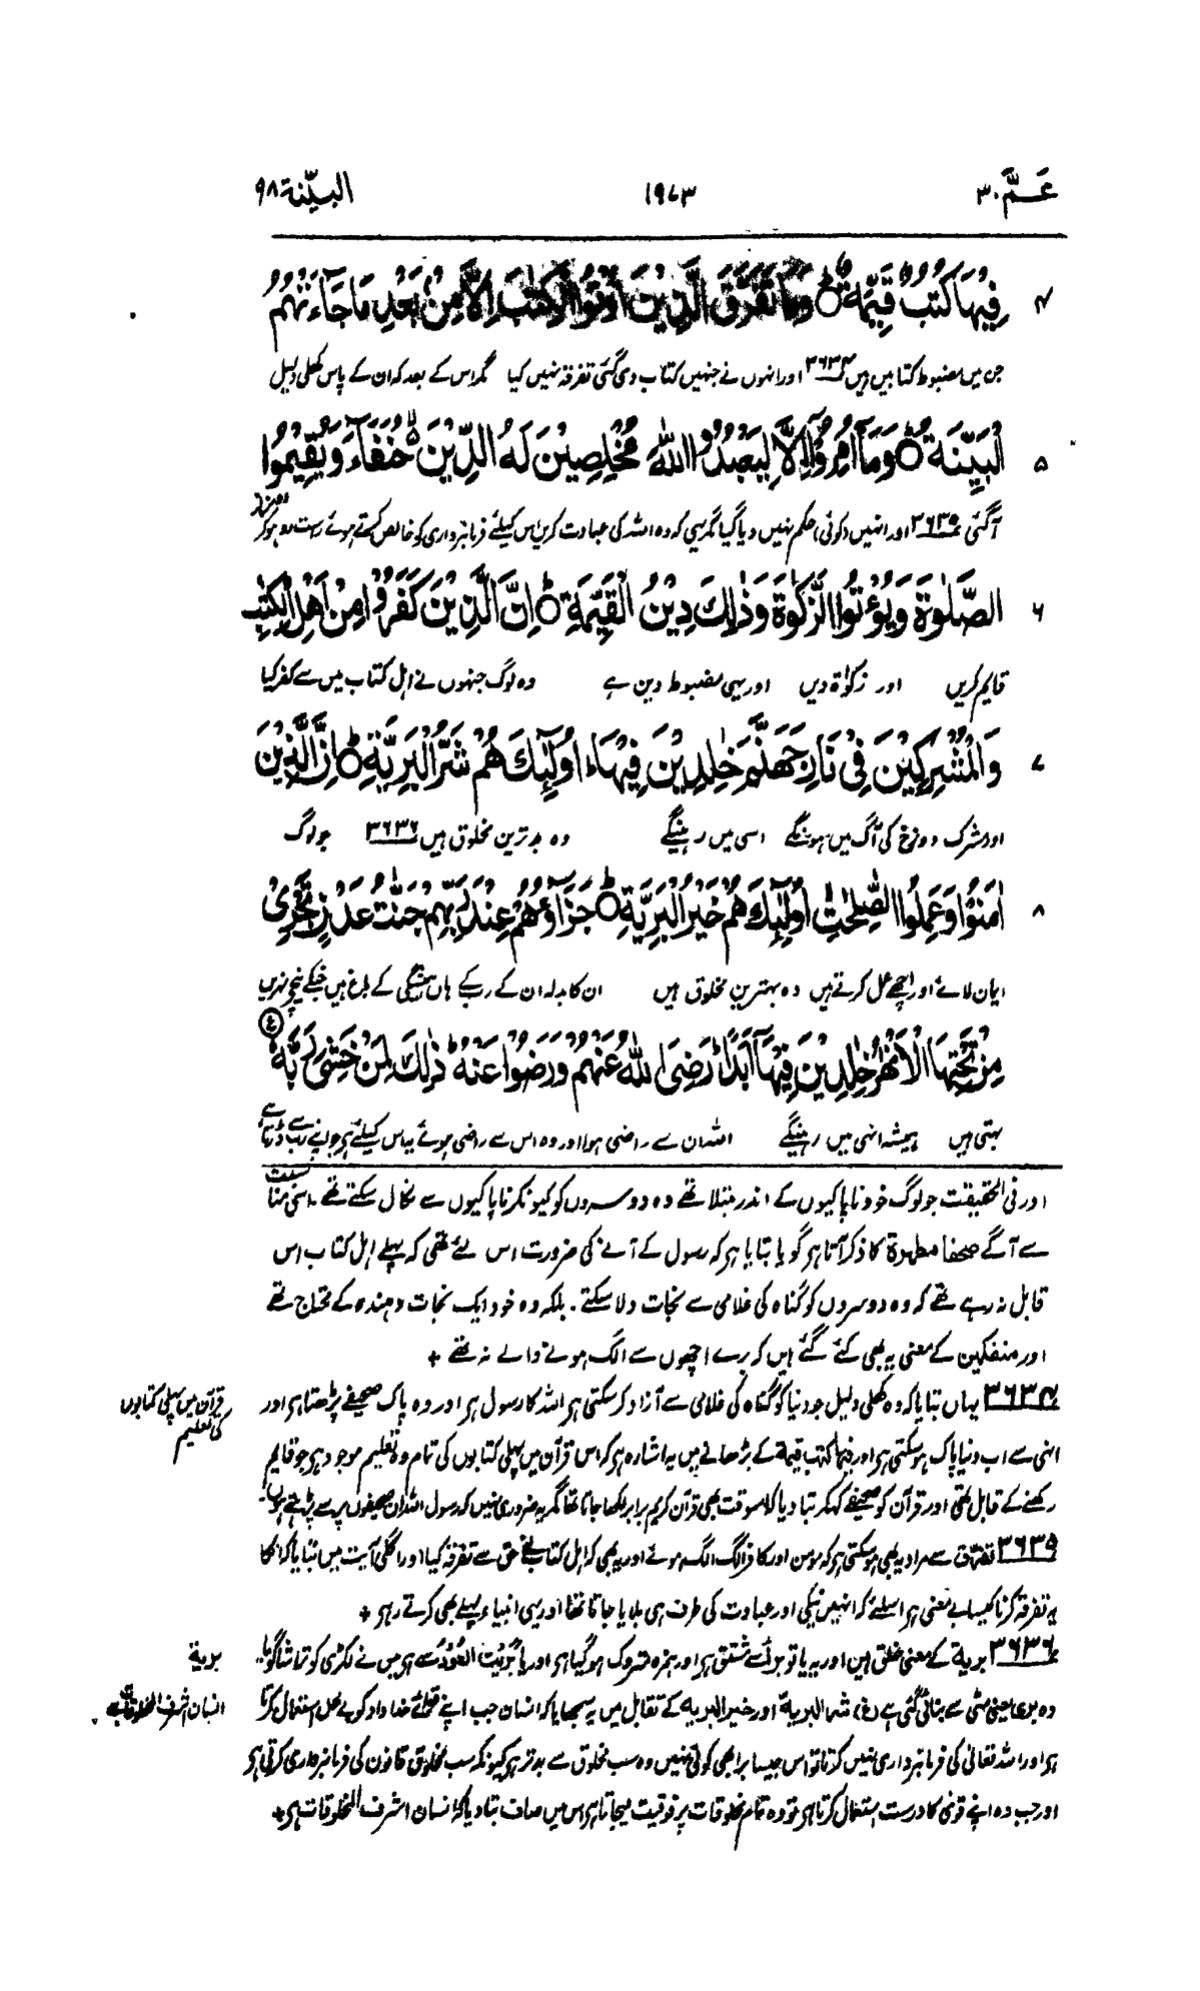 عَـمَّ ٣٠ ١٩٧٣ البيّنة ٩٨
فِيْهَا كُتُبٌ قَيِّمَةٌ ۝ وَمَا تَفَرَّقَ الَّذِيْنَ اُوْتُوا الْكِتٰبَ اِلَّا مِنْۢ بَعْدِ مَا جَآءَتْهُمُ ۴
جن میں مضبوط کتابیں ہیں ۳۶۳۴ اور انہوں نے جنہیں کتاب دی گئی تفرقہ نہیں کیا مگر اس کے بعد کہ ان کے پاس کھلی دلیل
الْبَيِّنَةُ ۝ وَمَآ اُمِرُوْٓا اِلَّا لِيَعْبُدُوا اللّٰهَ مُخْلِصِيْنَ لَهُ الدِّيْنَ ۙ حُنَفَآءَ وَيُقِيْمُوا ۵
آگئی ۳۶۳۵ اور انہیں (کوئی) حکم نہیں دیا گیا مگر یہی کہ وہ اللہ کی عبادت کریں اس کیلئے فرمانبرداری کو خالص کرتے ہوئے راست رو ہو کر اور نماز
الصَّلٰوةَ وَيُؤْتُوا الزَّكٰوةَ وَذٰلِكَ دِيْنُ الْقَيِّمَةِ ۝ اِنَّ الَّذِيْنَ كَفَرُوْا مِنْ اَهْلِ الْكِتٰبِ ۶
قایم کریں اور زکوٰۃ دیں اور یہی مضبوط دین ہے وہ لوگ جنہوں نے اہل کتاب میں سے کفر کیا
وَالْمُشْرِكِيْنَ فِيْ نَارِ جَهَنَّمَ خٰلِدِيْنَ فِيْهَا ؕ اُولٰٓئِكَ هُمْ شَرُّ الْبَرِيَّةِ ۝ اِنَّ الَّذِيْنَ ۷
اور مشرک دوزخ کی آگ میں ہونگے اسی میں رہینگے وہ بدترین مخلوق ہیں ۳۶۳۶ جو لوگ
اٰمَنُوْا وَعَمِلُوا الصّٰلِحٰتِ اُولٰٓئِكَ هُمْ خَيْرُ الْبَرِيَّةِ ۝ جَزَآؤُهُمْ عِنْدَ رَبِّهِمْ جَنّٰتُ عَدْنٍ تَجْرِيْ ۸
ایمان لائے اور اچھے عمل کرتے ہیں وہ بہترین مخلوق ہیں ان کا بدلہ ان کے رب کے ہاں ہمیشگی کے باغ ہیں جنکے نیچے نہریں
مِنْ تَحْتِهَا الْاَنْهٰرُ خٰلِدِيْنَ فِيْهَآ اَبَدًا ؕ رَضِيَ اللّٰهُ عَنْهُمْ وَرَضُوْا عَنْهُ ؕ ذٰلِكَ لِمَنْ خَشِيَ رَبَّهٗ ع
بہتی ہیں ہمیشہ انہی میں رہینگے اللہ ان سے راضی ہوا اور وہ اس سے راضی ہوئے یہ اس کیلئے ہے جو اپنے رب سے ڈرتا ہے
اور فی الحقیقت جو لوگ خود ناپاکیوں کے اندر مبتلا تھے وہ دوسروں کو کیونکر ناپاکیوں سے نکال سکتے تھے۔ اسی مناسبت
سے آگے صحفا مطہرۃ کا ذکر آتا ہے گویا بتایا ہے کہ رسول کے آنے کی ضرورت اس لئے تھی کہ پہلے اہل کتاب اس
قابل نہ رہے تھے کہ وہ دوسروں کو گناہ کی غلامی سے نجات دلا سکتے۔ بلکہ وہ خود ایک نجات دہندہ کے محتاج تھے
اور منفکین کے معنی یہ بھی کئے گئے ہیں کہ برے اچھوں سے الگ ہونے والے نہ تھے +
۳۶۳۴ یہاں بتایا کہ وہ کھلی دلیل جو دنیا کو گناہ کی غلامی سے آزاد کر سکتی ہے اللہ کا رسول ہے اور وہ پاک صحیفے پڑھتا ہے اور
قرآن میں پہلی کتابوں کی تعلیم
انہی سے اب دنیا پاک ہو سکتی ہے اور فیھا کتب قیمة کے بڑھانے میں یہ اشارہ ہے کہ اس قرآن میں پہلی کتابوں کی تمام وہ تعلیم موجود ہے جو قایم
رکھنے کے قابل تھی اور قرآن کو صحیفے کہکر بتا دیا کہ اسوقت بھی قرآن کریم برابر لکھا جاتا تھا مگر یہ ضروری نہیں کہ رسول اللہ ان صحیفوں پر سے پڑھتے ہوں
۳۶۳۵ تفرّق سے مراد یہ بھی ہو سکتی ہے کہ مومن اور کافر الگ الگ ہوئے اور یہ بھی کہ اہل کتاب نے حق سے تفرقہ کیا اور اگلی آیت میں بتایا کہ انکا
یہ تفرقہ کرنا کیسا بے معنی ہے اسلئے کہ انہیں نیکی اور عبادت کی طرف ہی بلایا جاتا تھا اور یہی انبیاء پہلے بھی کرتے رہے +
۳۶۳۶ بریة کے معنی خلق ہیں اور یہ یا تو برأ سے مشتق ہے اور ہمزہ متروک ہو گیا ہے اور یا بَرَیْتُ العُوْدَ سے ہے میں نے لکڑی کو تراشا گویا
بریة
وہ بری یعنی مٹی سے بنائی گئی ہے (غ) شر البریة اور خیر البریة کے تقابل میں یہ سمجھایا کہ انسان جب اپنے قوائے خداداد کو بے محل استعمال کرتا
انسان اشرف المخلوقات ہے
ہے اور اللہ تعالیٰ کی فرمانبرداری نہیں کرتا تو اس جیسا برا بھی کوئی نہیں وہ سب مخلوق سے بدتر ہے کیونکہ سب مخلوق قانون کی فرمانبرداری کرتی ہے
اور جب وہ اپنے قویٰ کا درست استعمال کرتا ہے تو وہ تمام مخلوقات پر فوقیت لیجاتا ہے اس میں صاف بتا دیا کہ انسان اشرف المخلوقات ہے +